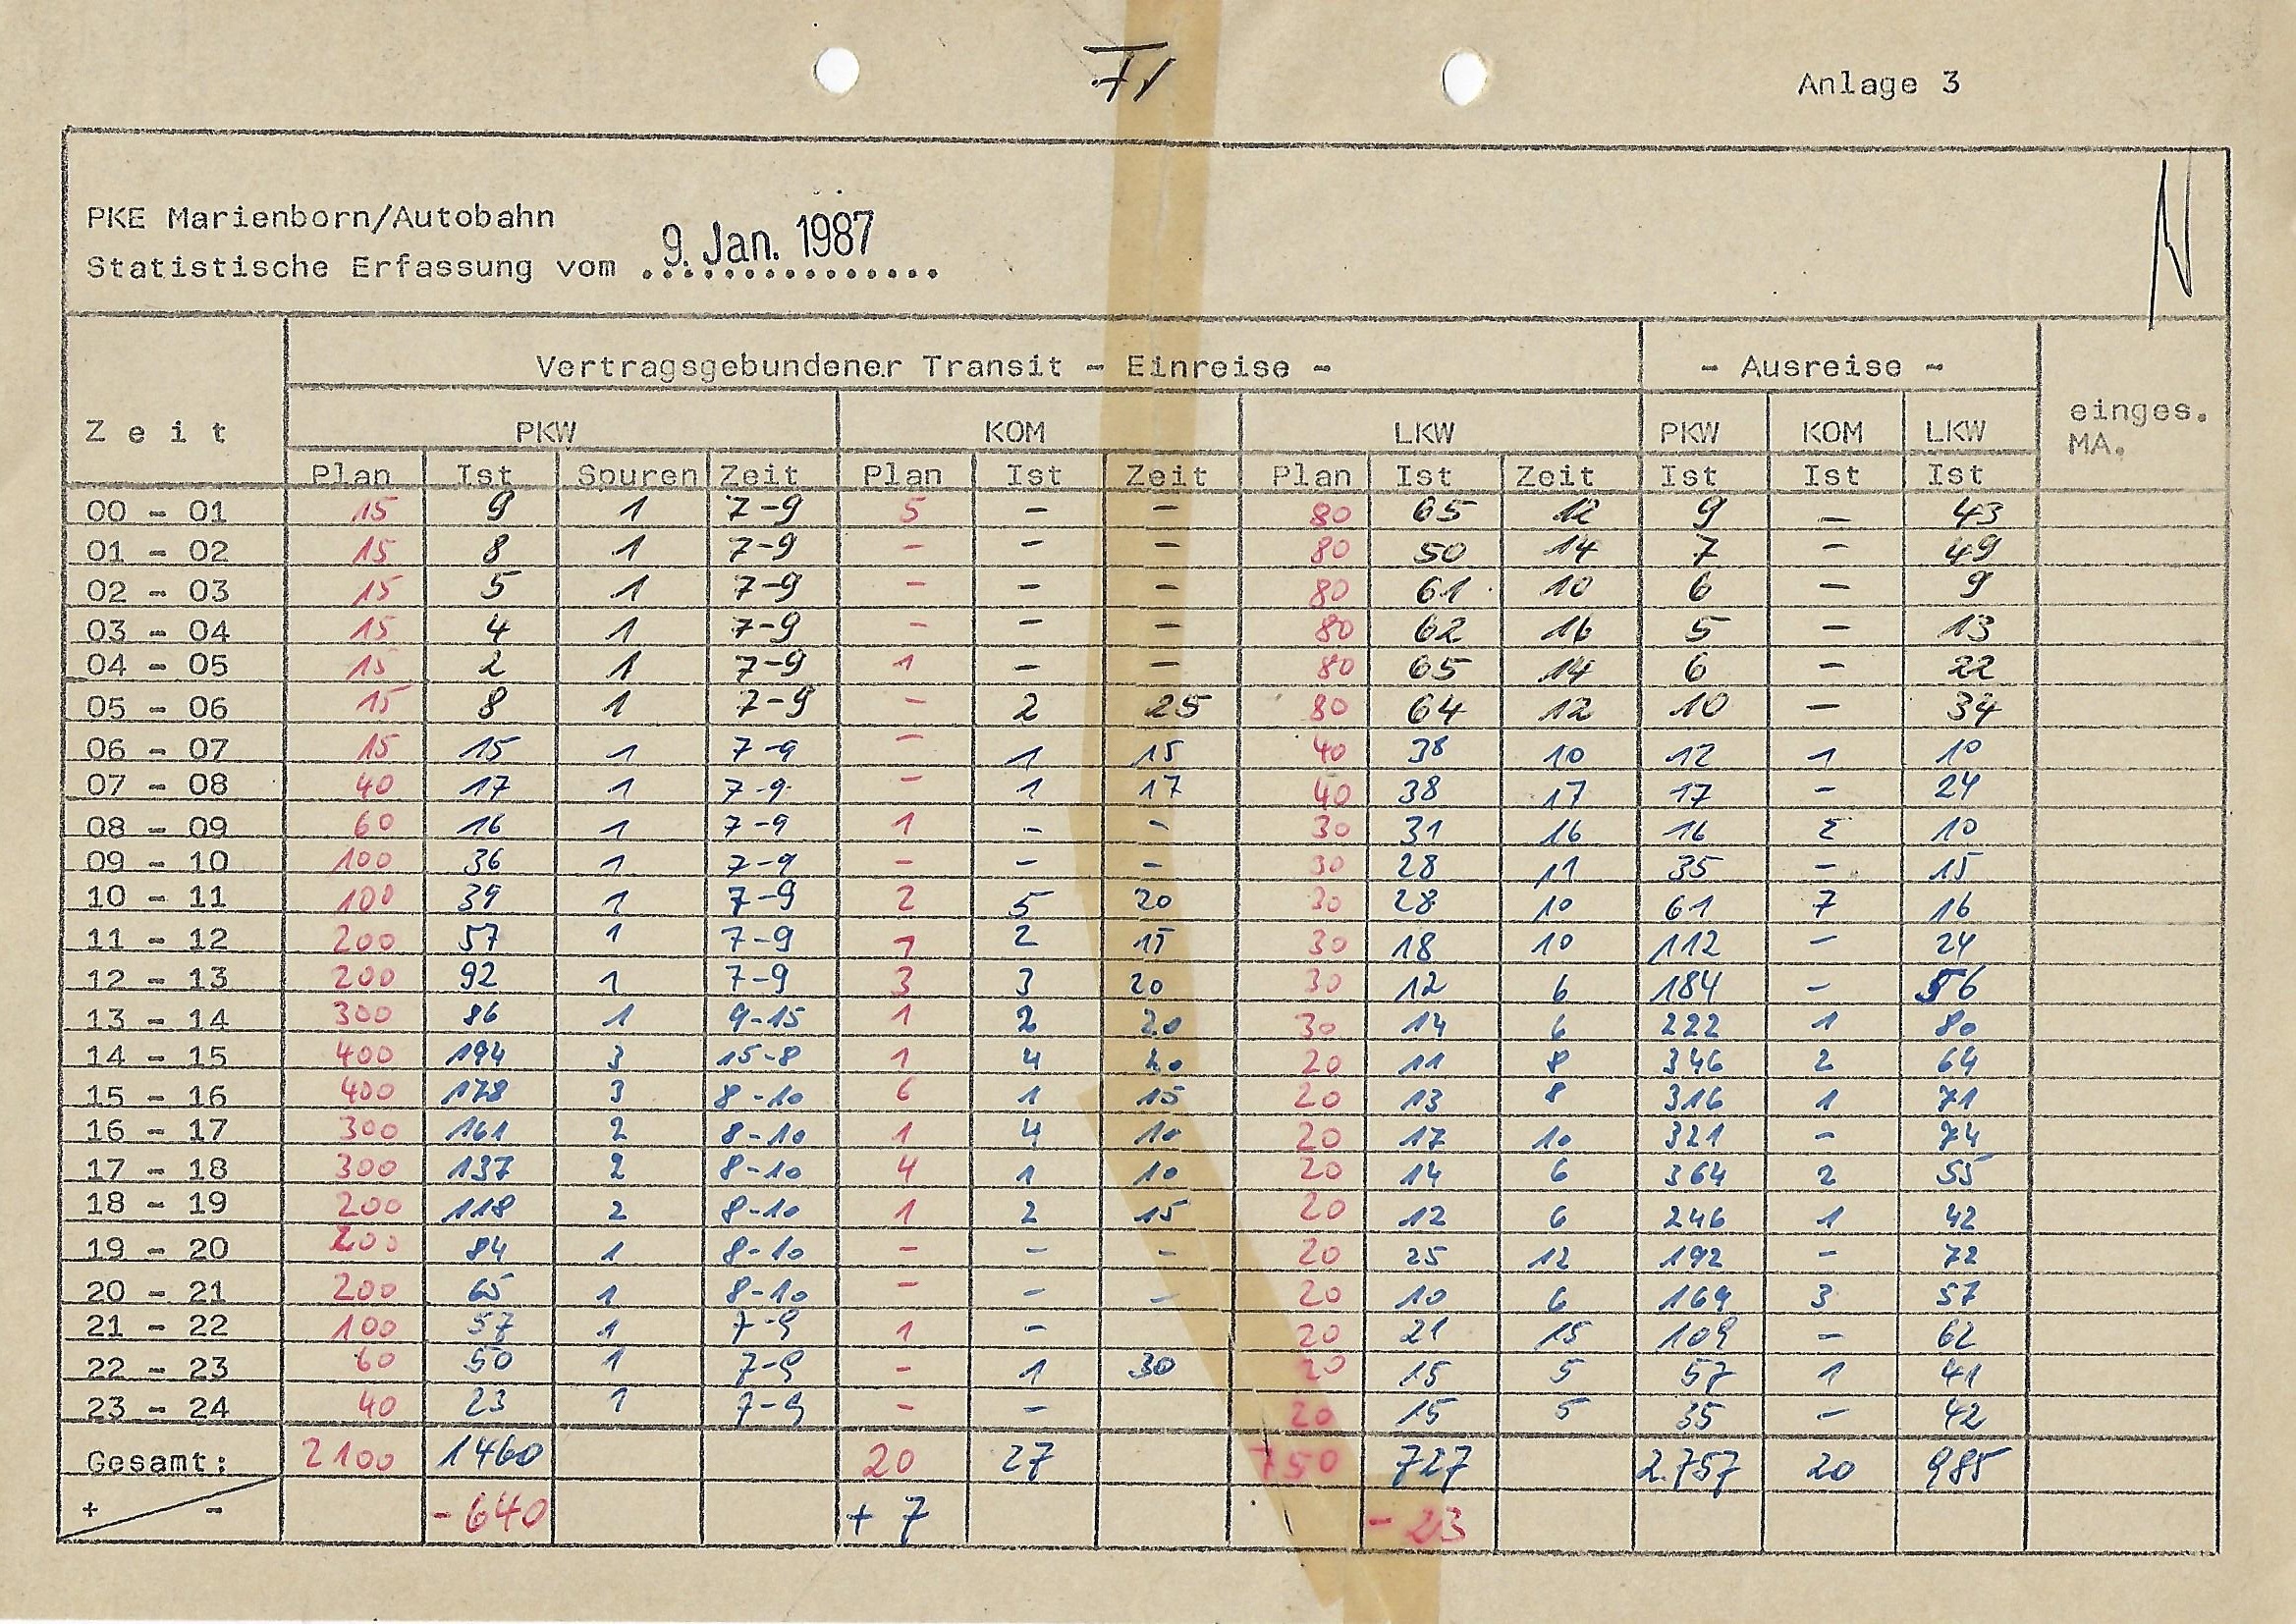 Fr
Anlage 3
PKE Marienborn/Autobahn
Statistische Erfassung vom 9. Jan. 1987
Vertragsgebundener Transit - Einreise - - Ausreise -
Zeit PKW KOM LKW PKW KOM LKW einges. MA.
Plan Ist Spuren Zeit Plan Ist Zeit Plan Ist Zeit Ist Ist Ist
00 - 01 15 9 1 7-9 5 - - 80 65 12 9 - 43
01 - 02 15 8 1 7-9 - - - 80 50 14 7 - 49
02 - 03 15 5 1 7-9 - - - 80 61 10 6 - 9
03 - 04 15 4 1 7-9 - - - 80 62 16 5 - 13
04 - 05 15 2 1 7-9 1 - - 80 65 14 6 - 22
05 - 06 15 8 1 7-9 - 2 25 80 64 12 10 - 34
06 - 07 15 15 1 7-9 - 1 15 40 38 10 12 1 10
07 - 08 40 17 1 7-9 - 1 17 40 38 17 17 - 24
08 - 09 60 16 1 7-9 1 - - 30 31 16 16 10
09 - 10 100 36 1 7-9 - - - 30 28 11 35 - 15
10 - 11 100 39 1 7-9 2 5 20 30 28 10 61 7 16
11 - 12 200 57 1 7-9 1 2 15 30 18 10 112 - 24
12 - 13 200 92 1 7-9 3 3 20 30 12 6 184 - 56
13 - 14 300 86 1 9-15 1 2 20 30 14 6 222 1 80
14 - 15 400 194 3 15-8 1 4 20 11 8 346 2 64
15 - 16 400 178 3 8-10 6 1 15 20 13 8 316 1 71
16 - 17 300 161 2 8-10 1 4 10 20 17 10 321 - 74
17 - 18 300 137 2 8-10 4 1 10 20 14 6 364 2 55
18 - 19 200 118 2 8-10 1 2 15 20 12 6 246 1 42
19 - 20 200 84 1 8-10 - - - 20 25 12 192 - 72
20 - 21 200 65 1 8-10 - - - 20 10 6 169 3 57
21 - 22 100 57 1 7-9 1 - 20 21 15 109 - 62
22 - 23 60 50 1 7-9 - 1 30 20 15 5 57 1 41
23 - 24 40 23 1 7-9 - - 20 15 5 35 - 42
Gesamt: 2100 1460 20 27 750 727 2.757 20 985
+ - -640 + 7 - 23